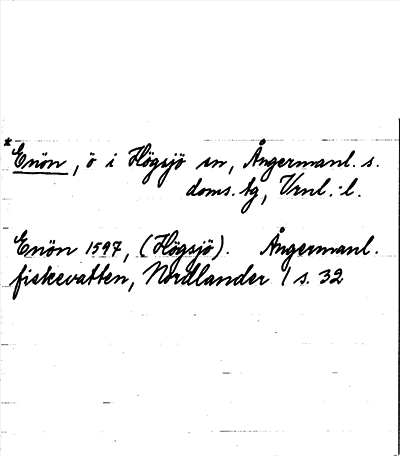 *Enön, ö i Högsjö sn, Ångermanl. s.
doms. tg, Vrnl.-l.
Enön 1597, (Högsjö). Ångermanl.
fiskevatten, Nordlander 1 s. 32